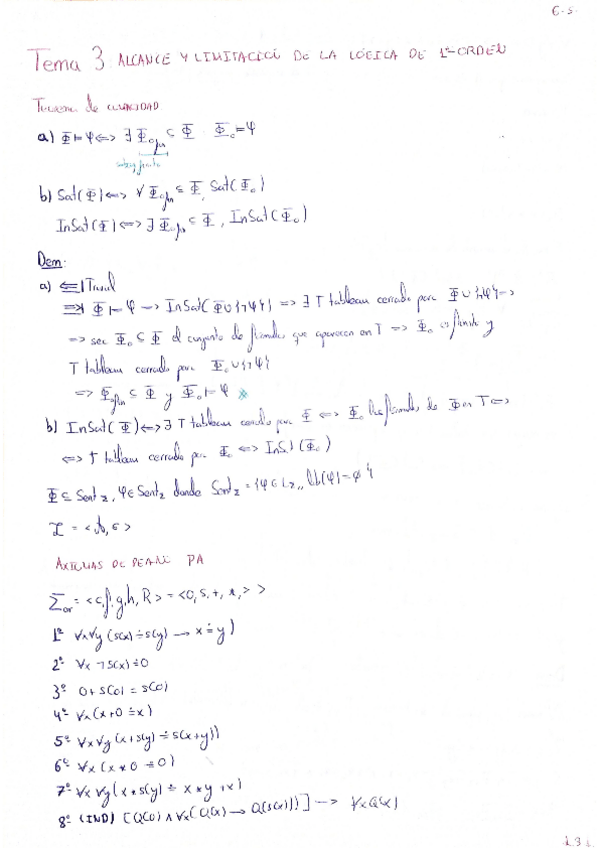 6-5
Tema 3 ALCANCE Y LIMITACIÓN DE LA LÓGICA DE 1er ORDEN
Teorema de COMPACIDAD
a) Φ ⊨ φ <=> ∃ Φ₀ fin ⊆ Φ Φ₀ ⊨ φ
b) Sat(Φ) <=> ∀ Φ₀ fin ⊆ Φ, Sat(Φ₀)
InSat(Φ) <=> ∃ Φ₀ fin ⊆ Φ, InSat(Φ₀)
Dem:
a) <=| Trivial
=>| Φ ⊨ φ -> InSat(Φ ∪ {¬φ}) => ∃ T tableau cerrado para Φ ∪ {¬φ} =>
=> sea Φ₀ ⊆ Φ el conjunto de fórmulas que aparecen en T => Φ₀ es finito y
T tableau cerrado para Φ₀ ∪ {¬φ}
=> Φ₀ fin ⊆ Φ y Φ₀ ⊨ φ
b) InSat(Φ) <=> ∃ T tableau cerrado para Φ <=> Φ₀ las fórmulas de Φ en T <=>
<=> T tableau cerrado para Φ₀ <=> InSat(Φ₀)
Φ ⊆ Sent Σ, φ ∈ Sent Σ donde Sent Σ = {φ ∈ L Σ, lib(φ) = ∅}
I = <A, σ>
AXIOMAS DE PEANO PA
Σar = <c, f, g, h, R> = <0, S, +, *, > >
1º ∀x∀y (s(x) ≐ s(y) -> x ≐ y)
2º ∀x ¬s(x) ≐ 0
3º 0 + s(0) = s(0)
4º ∀x (x+0 ≐ x)
5º ∀x∀y (x+s(y) ≐ s(x+y))
6º ∀x (x * 0 ≐ 0)
7º ∀x ∀y (x * s(y) ≐ x * y + x)
8º (IND) [Q(0) ∧ ∀x (Q(x) -> Q(s(x)))] -> ∀x Q(x)